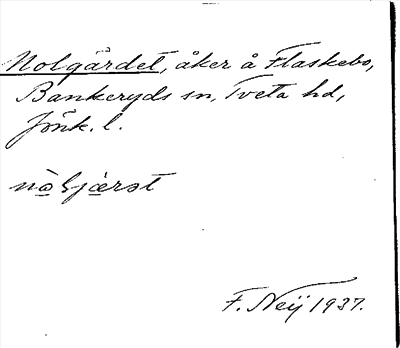 Nolgärdet, åker å Flaskebo,
Bankeryds sn, Tveta hd,
Jönk. l.
F. Neij 1937.